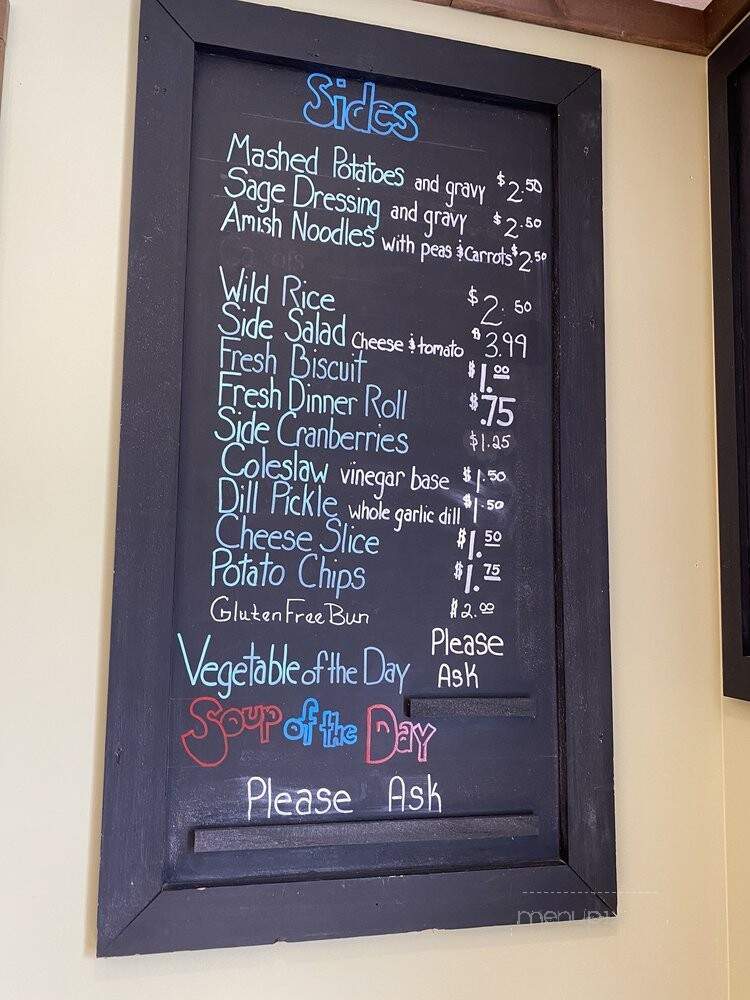 Sides
Mashed Potatoes and gravy $2.50
Sage Dressing and gravy $2.50
Amish Noodles with peas & Carrots $2.50
Wild Rice $2.50
Side Salad Cheese & tomato $3.99
Fresh Biscuit $1.00
Fresh Dinner Roll $.75
Side Cranberries $1.25
Coleslaw vinegar base $1.50
Dill Pickle whole garlic dill $1.50
Cheese Slice $1.50
Potato Chips $1.75
Gluten Free Bun $2.00
Vegetable of the Day Please Ask
Soup of the Day
Please Ask